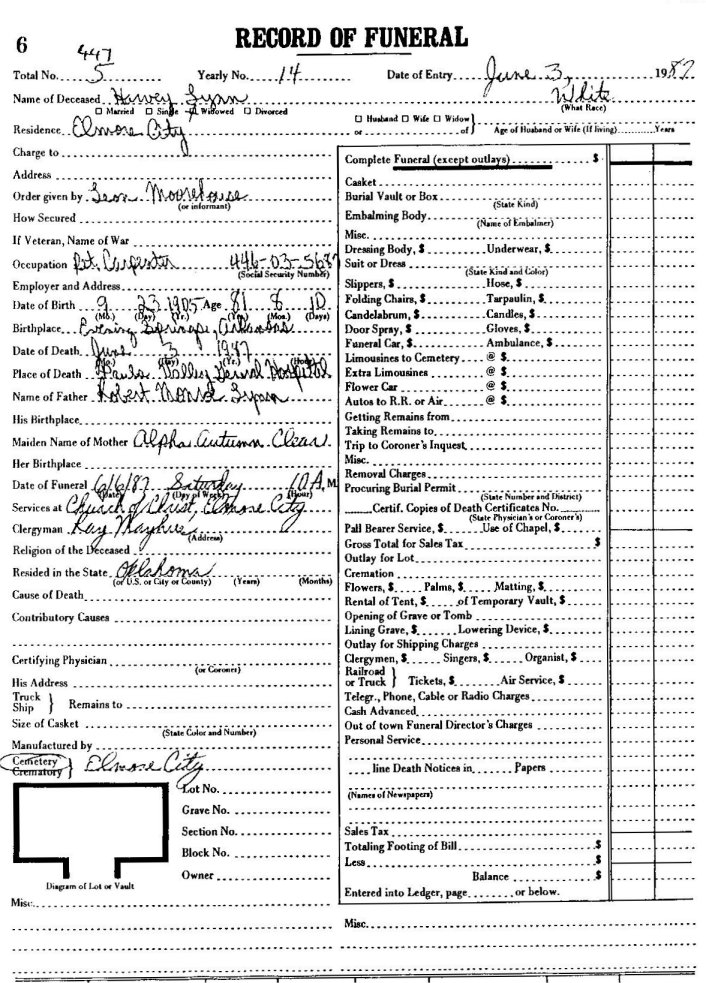 6
RECORD OF FUNERAL
447
Total No. 5 Yearly No. 14 Date of Entry June 3, 1987
Name of Deceased Harvey Lynn White
☐ Married ☐ Single ☐ Widowed ☐ Divorced (What Race)
☐ Husband ☐ Wife ☐ Widow }
or of } Age of Husband or Wife (If living) Years
Residence Elmore City
Charge to
Address
Order given by Leon Moorehouse
(or informant)
How Secured
If Veteran, Name of War
Occupation Ret. Carpenter 446-03-5687
(Social Security Number)
Employer and Address
Date of Birth 9 23 1905 Age 81 8 10
(Mo.) (Day) (Yr.) (Yrs.) (Mos.) (Days)
Birthplace Evening Springs, Arkansas
Date of Death June 3 1987
(Mo.) (Day) (Yr.) (Hour)
Place of Death Pauls Valley General Hospital
Name of Father Robert Lynn
His Birthplace
Maiden Name of Mother Alpha Autumn Clear
Her Birthplace
Date of Funeral 6/6/87 Saturday 10 A. M
(Date) (Day of Week) (Hour)
Services at Church of Christ, Elmore City
Clergyman Ray
(Address)
Religion of the Deceased
Resided in the State Oklahoma
(or U.S. or City or County) (Years) (Months)
Cause of Death
Contributory Causes
Certifying Physician
(or Coroner)
His Address
Truck
Ship } Remains to
Size of Casket
(State Color and Number)
Manufactured by
Cemetery
Crematory } Elmore City
Lot No.
Grave No.
Section No.
Block No.
Owner
Diagram of Lot or Vault
Misc.
Complete Funeral (except outlays) $
Casket
Burial Vault or Box
(State Kind)
Embalming Body
(Name of Embalmer)
Misc.
Dressing Body, $ Underwear, $
Suit or Dress
(State Kind and Color)
Slippers, $ Hose, $
Folding Chairs, $ Tarpaulin, $
Candelabrum, $ Candles, $
Door Spray, $ Gloves, $
Funeral Car, $ Ambulance, $
Limousines to Cemetery @ $
Extra Limousines @ $
Flower Car @ $
Autos to R.R. or Air @ $
Getting Remains from
Taking Remains to
Trip to Coroner's Inquest
Misc.
Removal Charges
Procuring Burial Permit
(State Number and District)
Certif. Copies of Death Certificates No.
(State Physician's or Coroner's)
Pall Bearer Service, $ Use of Chapel, $
Gross Total for Sales Tax $
Outlay for Lot
Cremation
Flowers, $ Palms, $ Matting, $
Rental of Tent, $ of Temporary Vault, $
Opening of Grave or Tomb
Lining Grave, $ Lowering Device, $
Outlay for Shipping Charges
Clergymen, $ Singers, $ Organist, $
Railroad
or Truck } Tickets, $ Air Service, $
Telegr., Phone, Cable or Radio Charges
Cash Advanced
Out of town Funeral Director's Charges
Personal Service
line Death Notices in Papers
(Names of Newspapers)
Sales Tax
Totaling Footing of Bill $
Less $
Balance $
Entered into Ledger, page or below.
Misc.